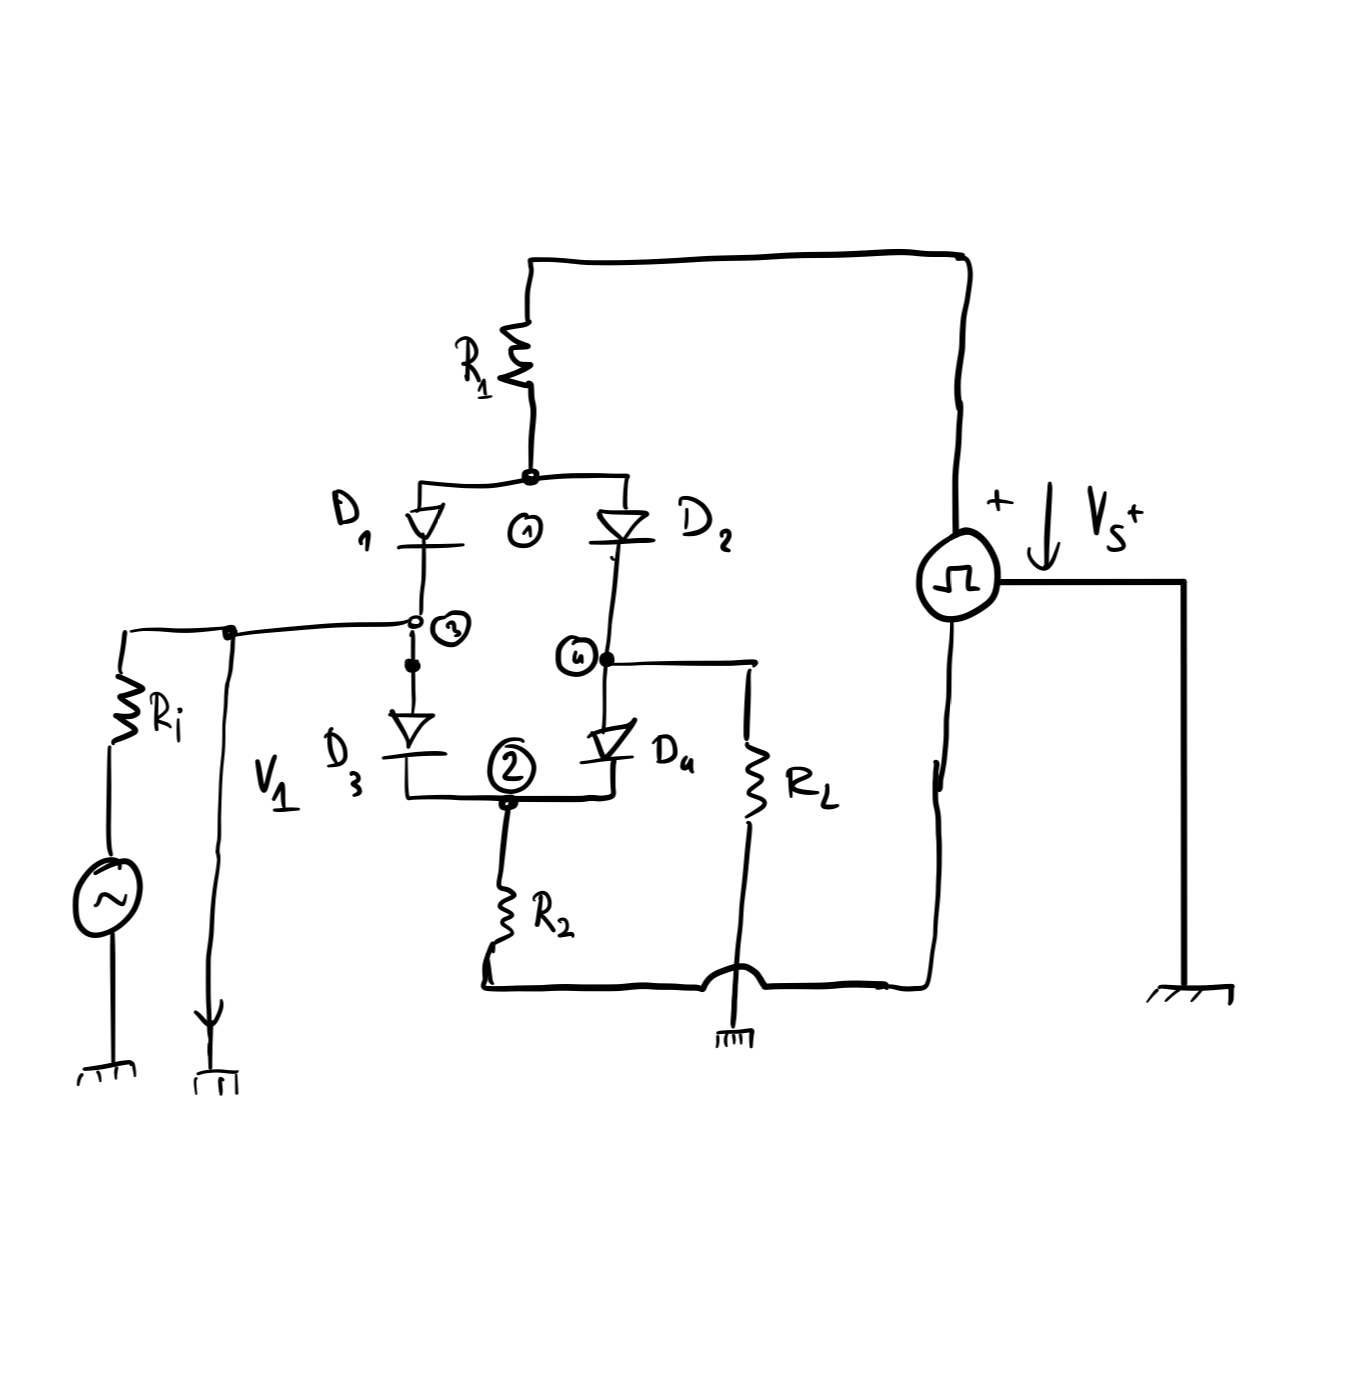 R1
D1
1
D2
+
Vs+
3
4
Ri
V1
D3
2
D4
RL
R2